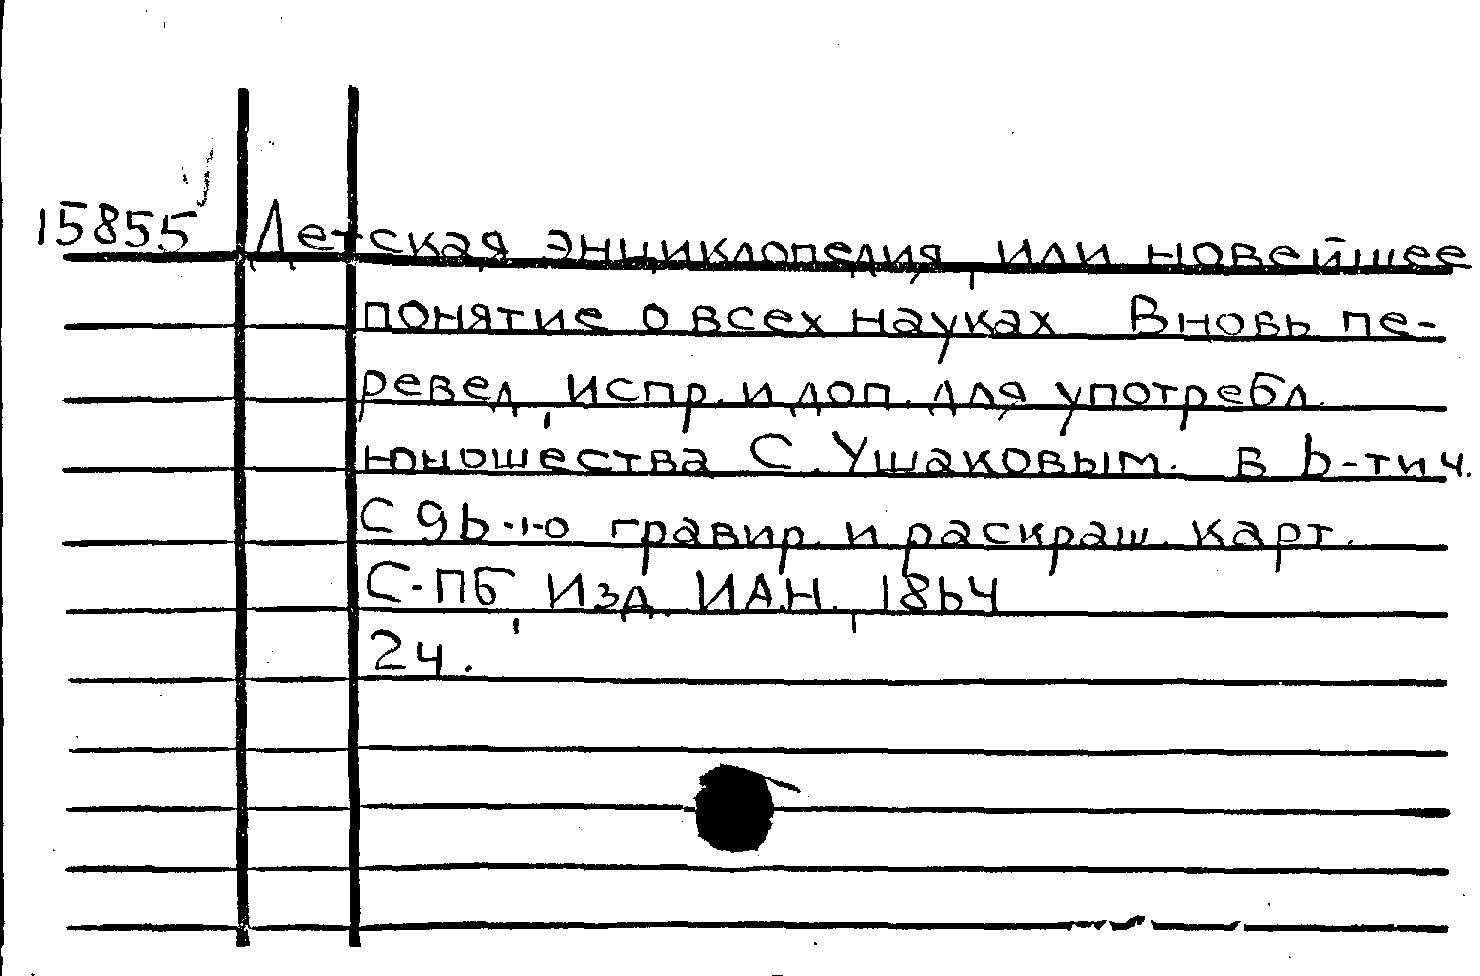 15855 Детская энциклопедия, или новейшее
понятие о всех науках Вновь пе-
ревед, испр. и доп. для употребл.
юношества С. Ушаковым. в 6-ти ч.
С 96-ю гравир. и раскраш. карт.
С-ПБ, Изд. ИАН., 1864
2ч.